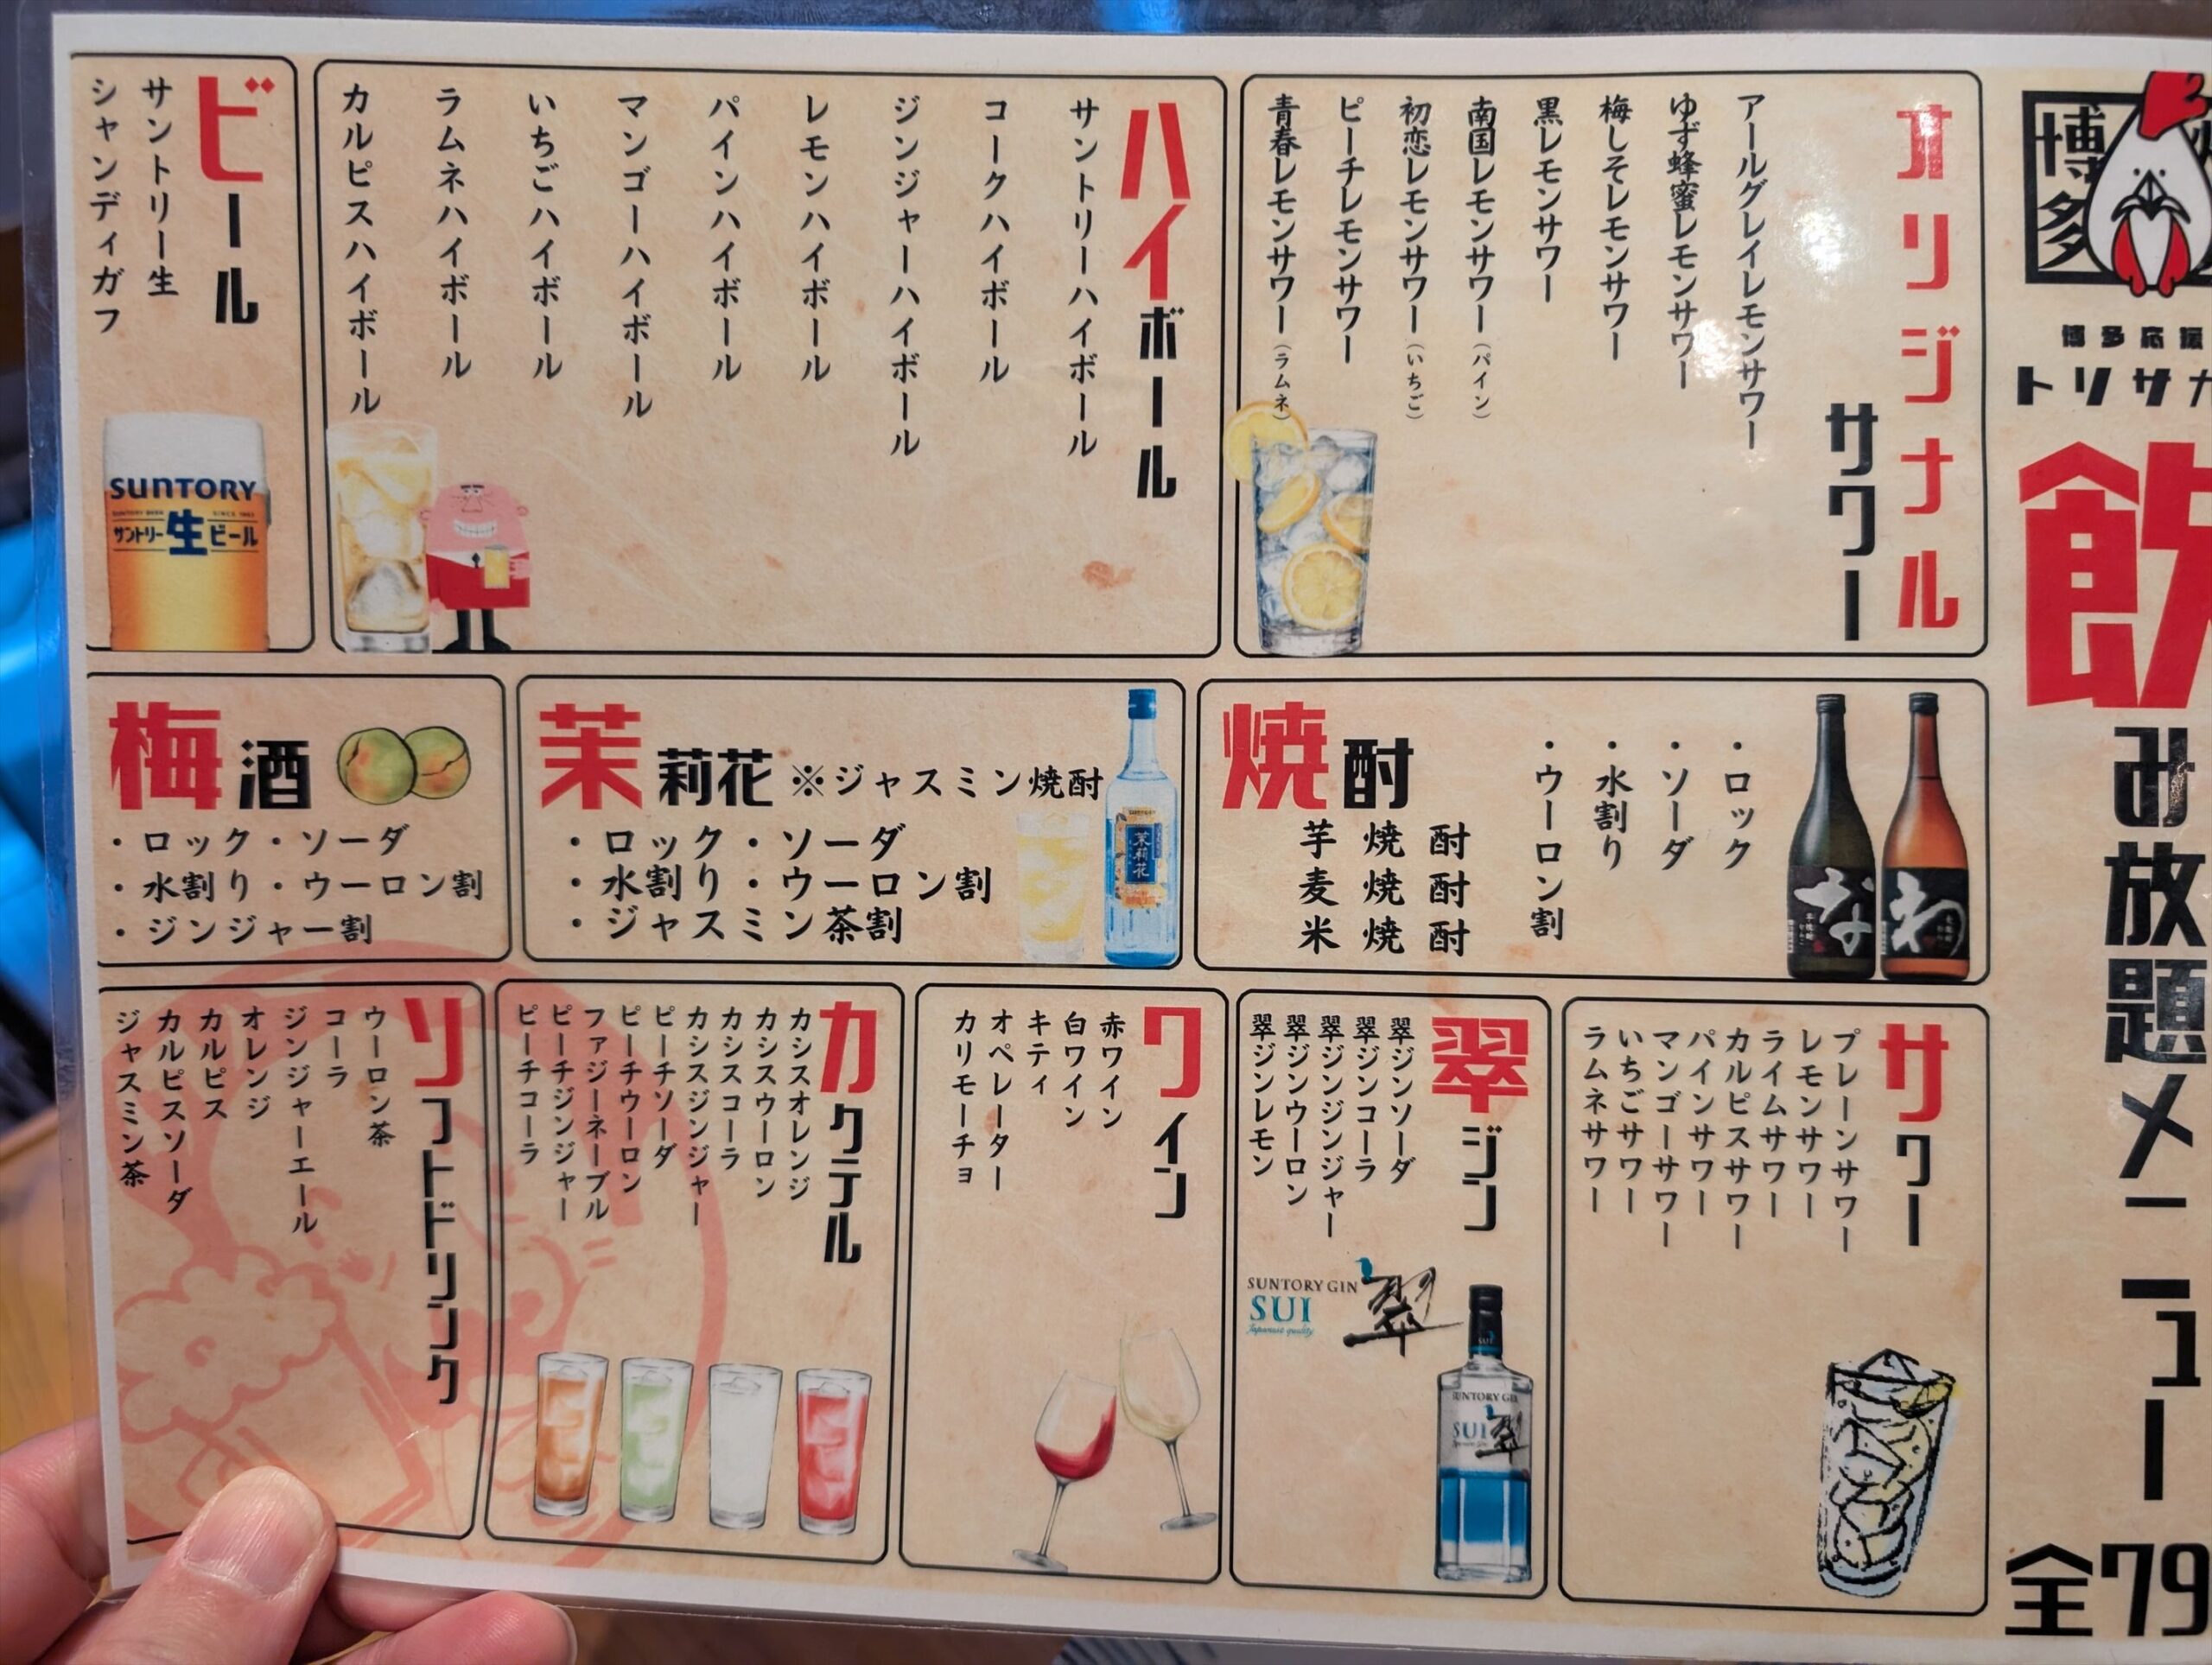 博多
博多応援
トリサカ
飲み放題メニュー
全79
オリジナル
サワー
アールグレイレモンサワー
ゆず蜂蜜レモンサワー
梅しそレモンサワー
黒レモンサワー
南国レモンサワー(パイン)
初恋レモンサワー(いちご)
ピーチレモンサワー
青春レモンサワー(ラムネ)
ハイボール
サントリーハイボール
コークハイボール
ジンジャーハイボール
レモンハイボール
パインハイボール
マンゴーハイボール
いちごハイボール
ラムネハイボール
カルピスハイボール
ビール
サントリー生
シャンディガフ
SUNTORY
サントリー生ビール
焼酎
芋焼酎
麦焼酎
米焼酎
・ロック
・ソーダ
・水割り
・ウーロン割
茉莉花 ※ジャスミン焼酎
・ロック・ソーダ
・水割り・ウーロン割
・ジャスミン茶割
茉莉花
梅酒
・ロック・ソーダ
・水割り・ウーロン割
・ジンジャー割
サワー
プレーンサワー
レモンサワー
ライムサワー
カルピスサワー
パインサワー
マンゴーサワー
いちごサワー
ラムネサワー
翠ジン
翠ジンソーダ
翠ジンコーラ
翠ジンジンジャー
翠ジンウーロン
翠ジンレモン
SUNTORY GIN
SUI
Japanese quality
翠
SUNTORY GIN
SUI
翠
ワイン
赤ワイン
白ワイン
キティ
オペレーター
カリモーチョ
カクテル
カシスオレンジ
カシスウーロン
カシスコーラ
カシスジンジャー
ピーチソーダ
ピーチウーロン
ファジーネーブル
ピーチジンジャー
ピーチコーラ
ソフトドリンク
ウーロン茶
コーラ
ジンジャーエール
オレンジ
カルピス
カルピスソーダ
ジャスミン茶